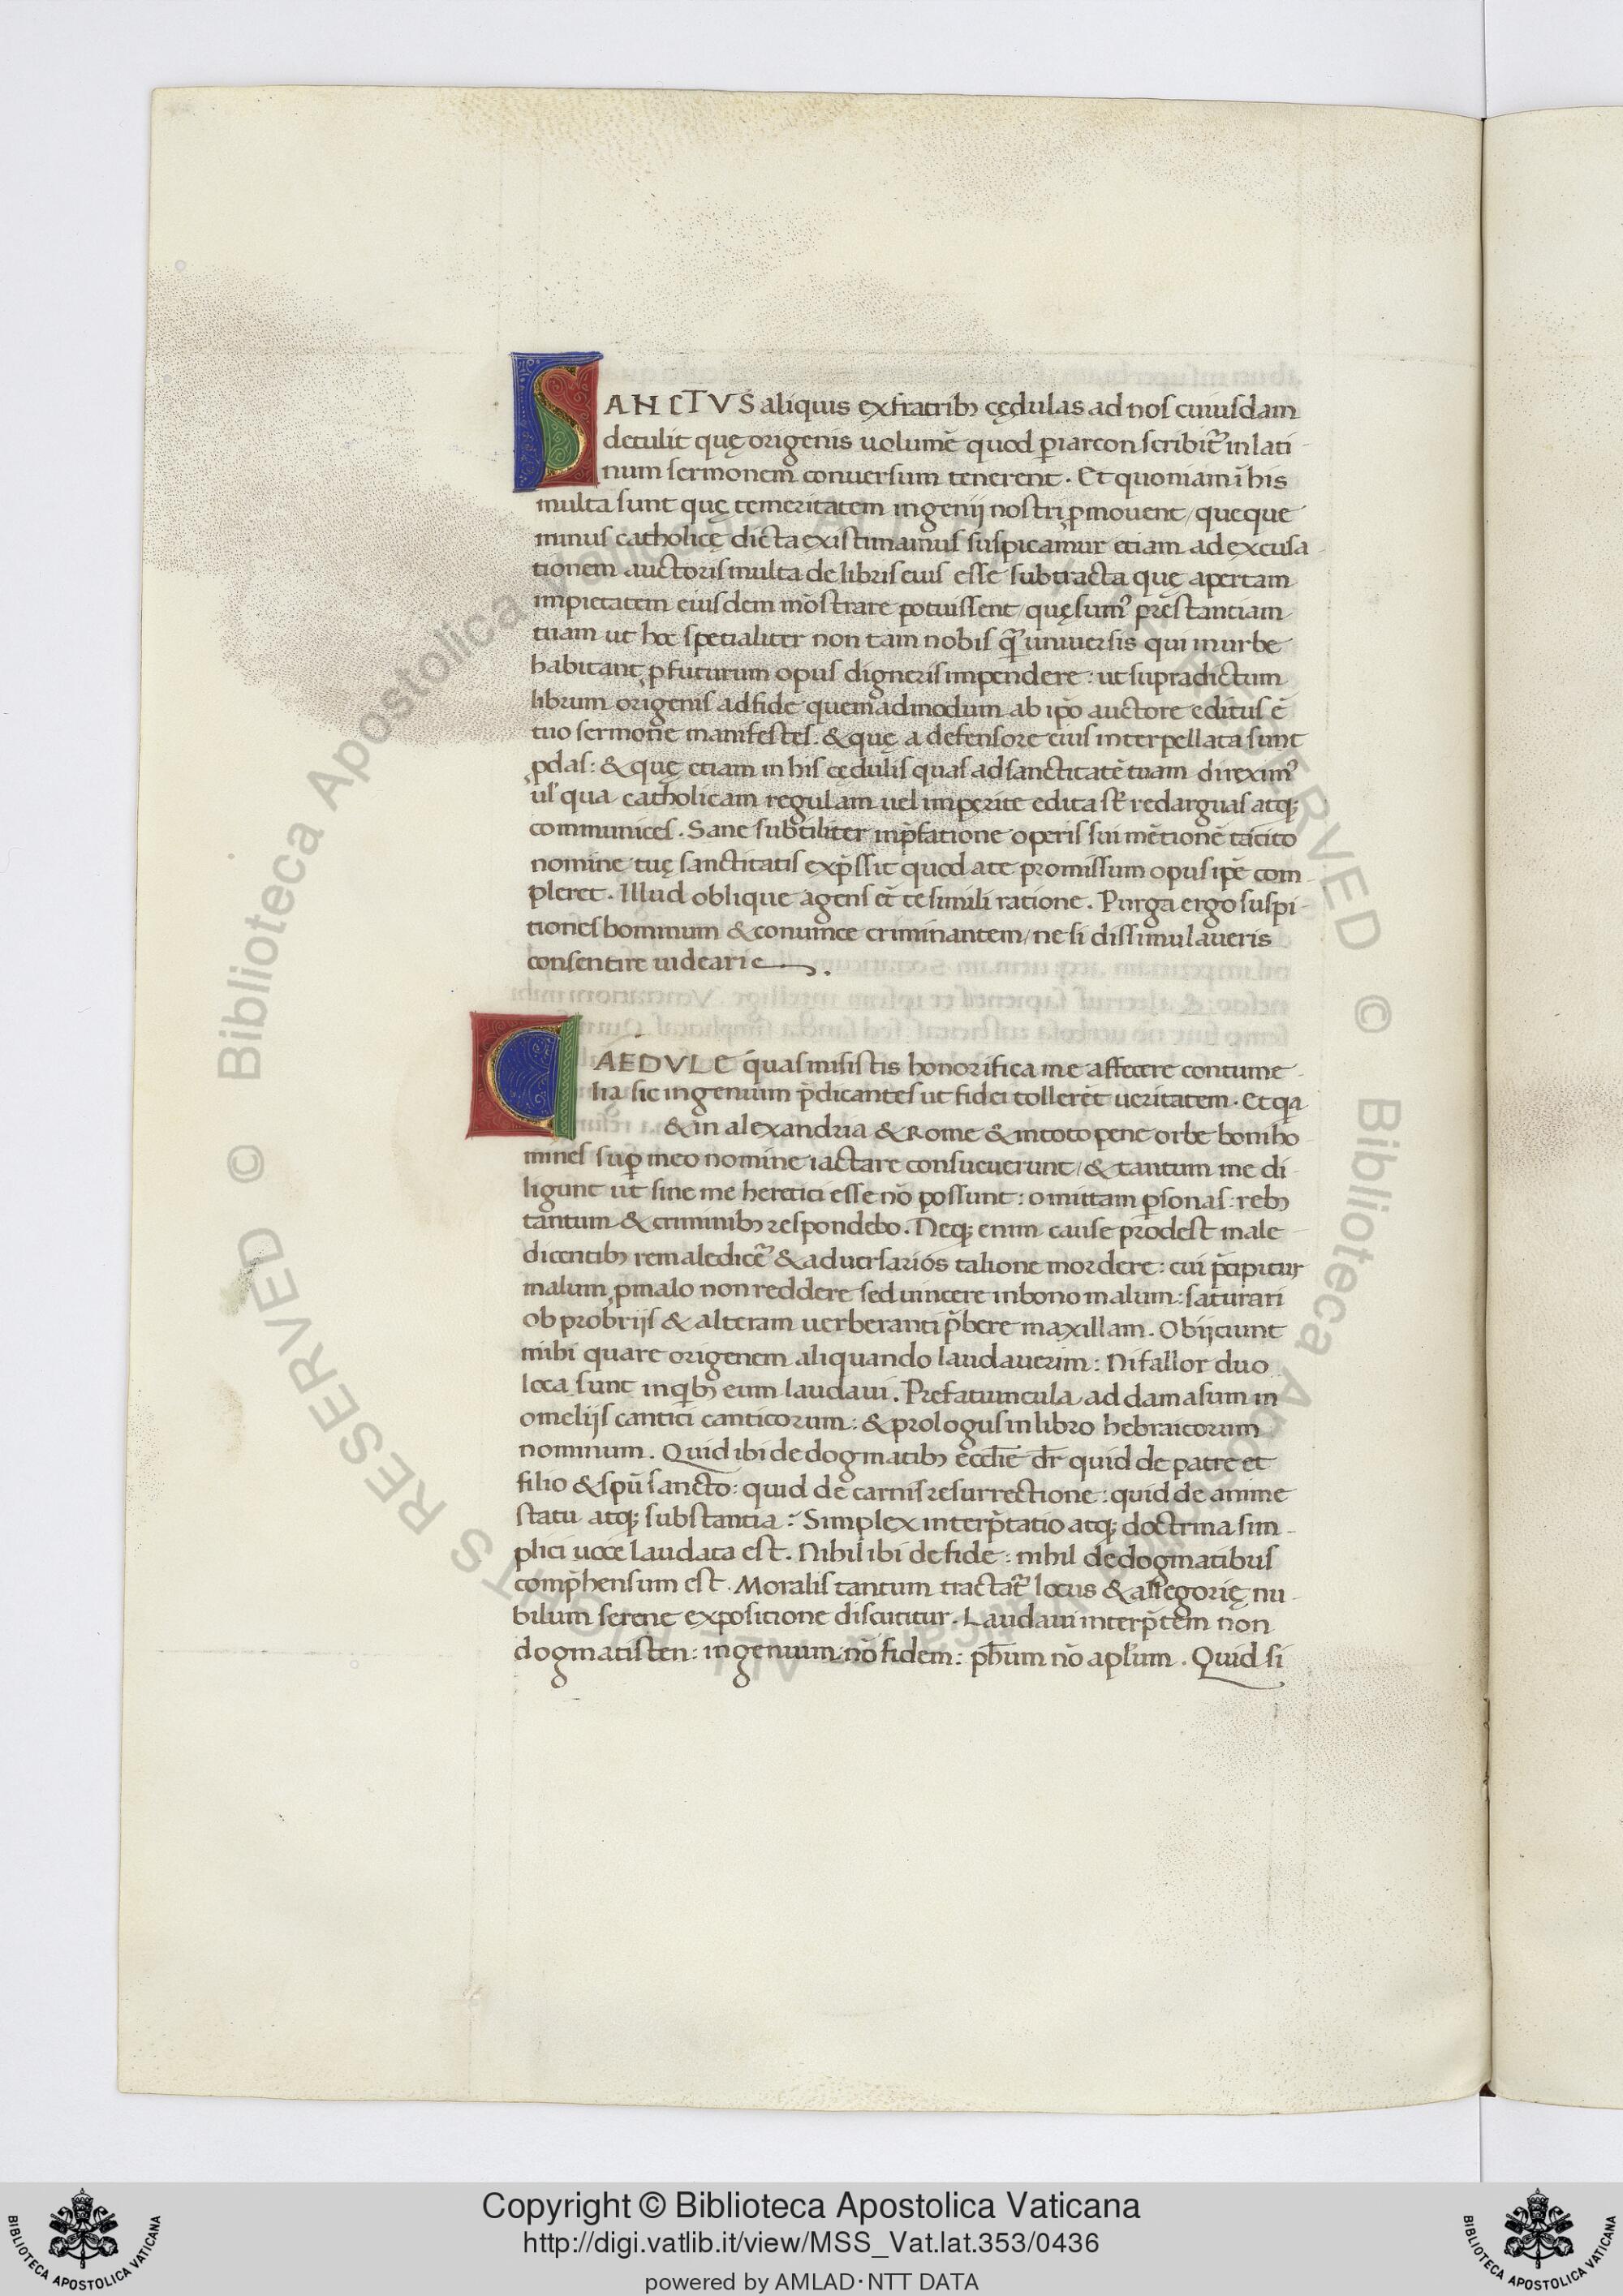 SANCTVS aliquis ex fratribꝫ cędulas ad nos cuiusdam
detulit quę origenis uolumē quod ꝑiarcon scribit᷑ in lati
num sermonem conuersum tenerent. Et quoniam ī his
multa sunt quę temeritatem ingenij nostri ꝑmouent/ queque
minus catholicę dicta existimamus suspicamur etiam ad excusa
tionem auctoris multa de libris eius esse subtracta quę apertam
impietatem eiusdem mōstrare potuissent/ quęsumꝰ prēstantiam
tuam ut hoc spetialiter non tam nobis qͣ̄ uniuersis qui in urbe
habitant ꝓfuturum opus digneris impendere: ut supradictum
librum origenis ad fidē quemadmodum ab ip̄o auctore editus ē
tuo sermone manifestes: & quę a defensore eius interpellata sunt
ꝓdas: & quę etiam in his cedulis quas ad sanctitatē tuam direximꝰ
ul̓ qua catholicam regulam uel imperite edita st̄ redarguas atqꝫ
communices. Sane subtiliter in p̄fatione operis sui mētionē tacito
nomine tuę sanctitatis exp̄ssit quod a te promissum opus ip̄e com
pleret. Illud oblique agens et̄ te simili ratione. Purga ergo suspi
tiones hominum & conuince criminantem/ ne si dissimulaueris
consentire uidearie.
CAEDVLE quas misistis honorifica me affecere contume
lia sic ingenium p̄dicantes ut fidei tollerēt ueritatem. Et qa
& in alexandria & Rome & in toto pene orbe boni ho
mines suꝑ meo nomine iactare consueuerunt/ & tantum me di
ligunt ut sine me heretici esse nō possunt: omittam ꝑsonas: rebꝫ
tantum & criminibꝫ respondebo. Neqꝫ enim cause prodest male
dicentibꝫ remaledicēr & aduersarios talione mordere: cui p̄cipitur
malum ꝓ malo non reddere sed uincere in bono malum: saturari
obprobrijs & alteram uerberanti p̄bere maxillam. Obijciunt
mihi quare origenem aliquando laudauerim: Ni fallor duo
loca sunt in qͥbꝫ eum laudaui. Prefatiuncula ad damasum in
omelijs cantici canticorum: & prologus in libro hebraicorum
nominum. Quid ibi de dogmatibꝫ ecclīe dr̄ quid de patre et
filio & spū sancto: quid de carnis resurrectione: quid de anime
statu atqꝫ substantia: Simplex interp̄tatio atqꝫ doctrina sim
plici uoce laudata est. Nihil ibi de fide: nihil de dogmatibus
comp̄hensum est. Moralis tantum tractat᷑ locus & allegorię nu
bilum serene expositione discutitur. Laudaui interp̄tem non
dogmatisten: ingenium nō fidem: ph̄um nō aplūm. Quid si
Copyright © Biblioteca Apostolica Vaticana
http://digi.vatlib.it/view/MSS_Vat.lat.353/0436
powered by AMLAD·NTT DATA
BIBLIOTECA APOSTOLICA VATICANA
BIBLIOTECA APOSTOLICA VATICANA